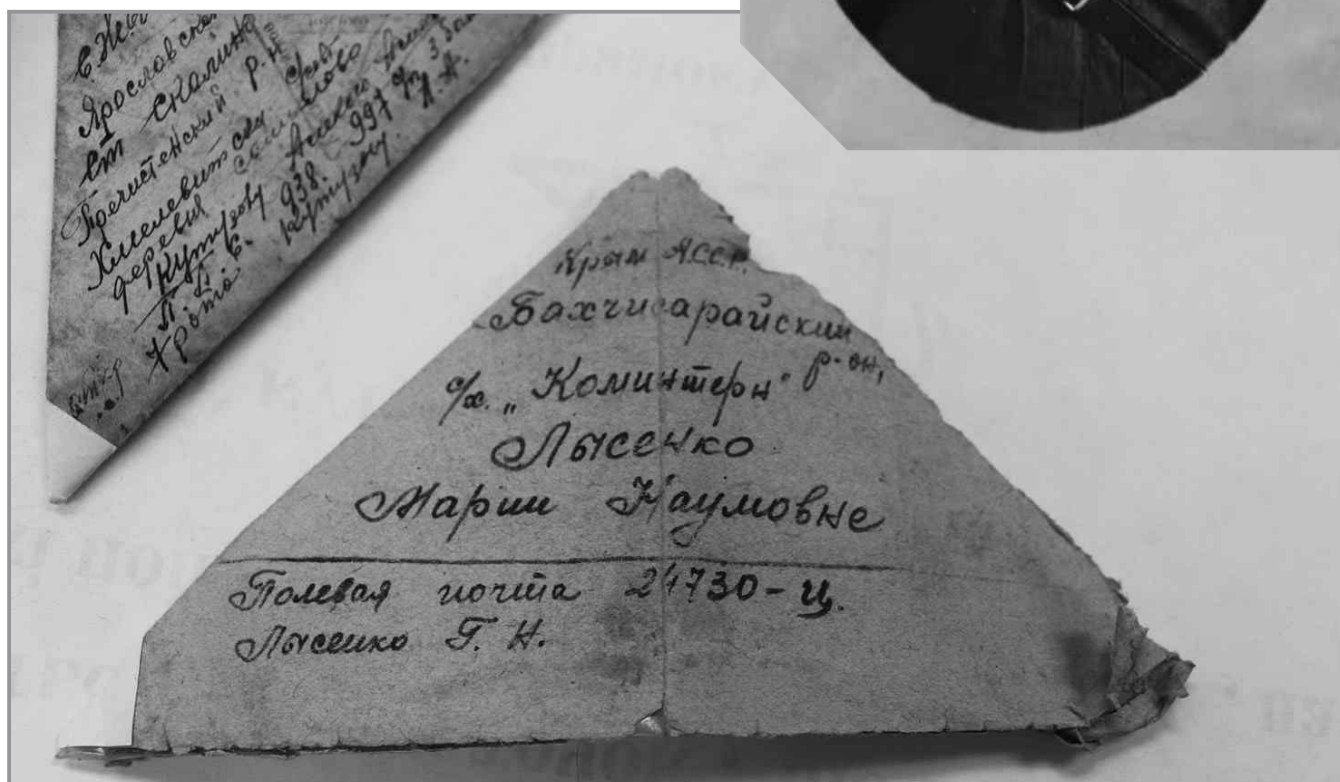 Ярославской
ст Скалино
Пречистенский р-н
Хмелевитский с/сов
деревня
Кутузову
938. 997
7 рота Кутузову
Крым АССР.
Бахчисарайский
р-он,
с/х. „Коминтерн"
Лысенко
Марии Наумовне
Полевая почта 24730-Ц.
Лысенко Г. Н.